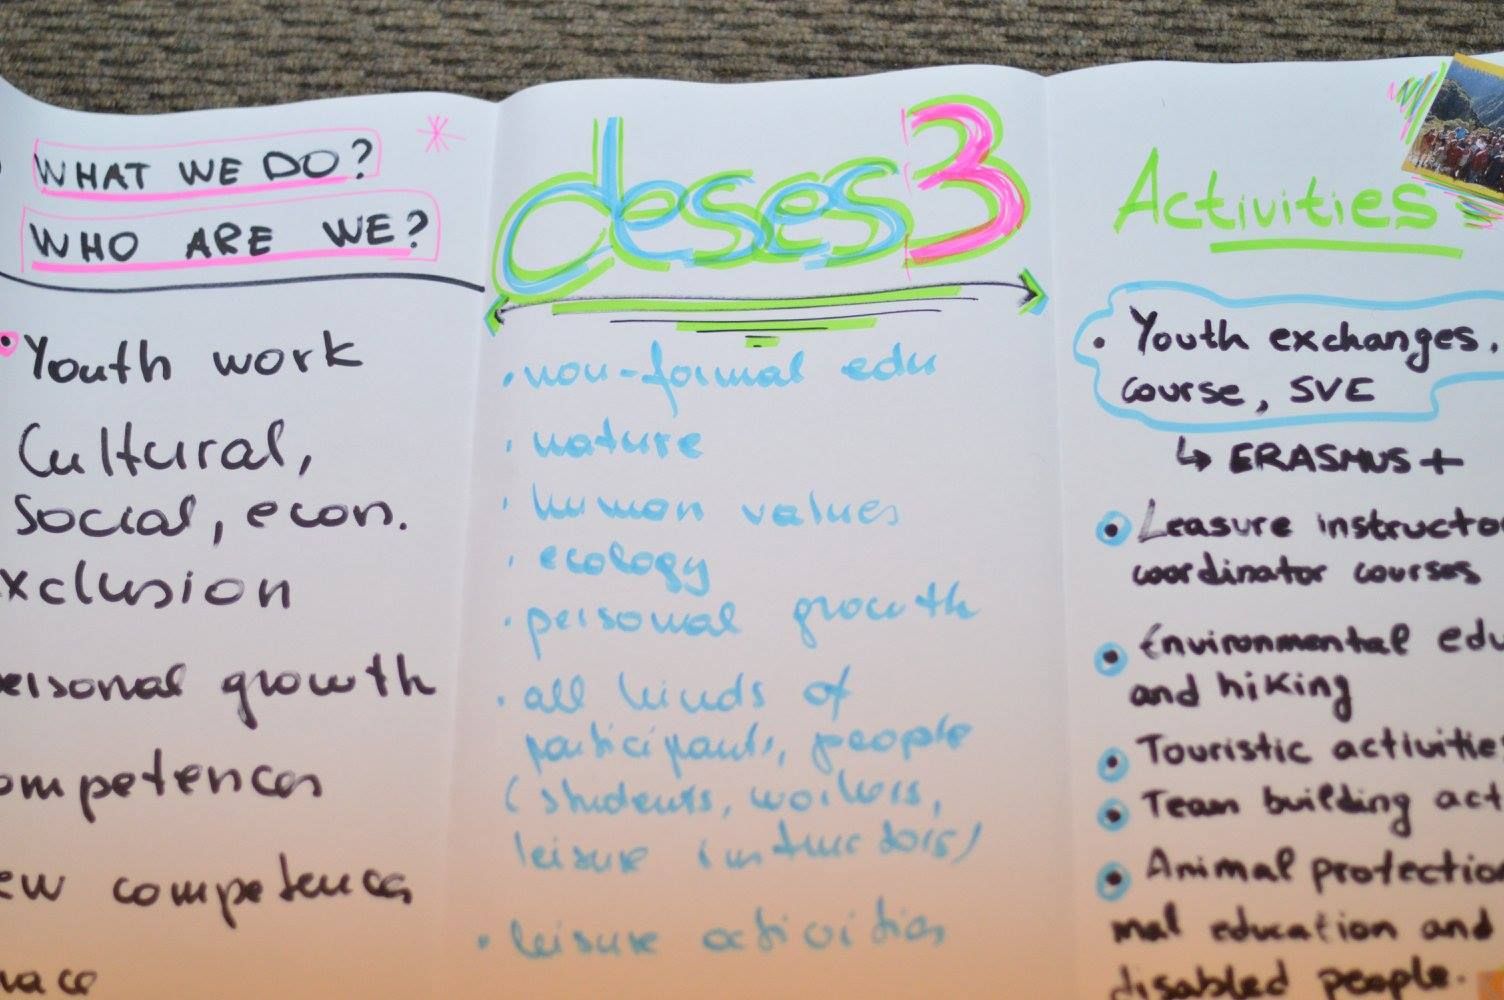 WHAT WE DO?
WHO ARE WE?
Youth work
Cultural,
Social, econ.
xclusion
personal growth
ompetences
ew competences
deses3
· non-formal edu
· nature
· human values
· ecology
· personal growth
· all kinds of
participants, people
(students, workers,
leisure instructors)
· leisure activities
Activities
· Youth exchanges.
course, SVE
↳ ERASMUS+
· Leasure instructo
coordinator courses
· Environmental edu
and hiking
· Touristic activitie
· Team building act
· Animal protection
mal education and
disabled people.